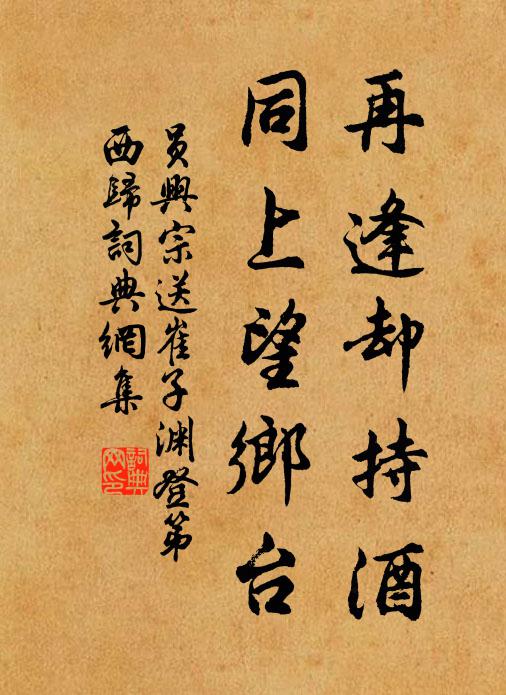 再逢却持酒
同上望鄉台
員興宗送崔子渊登第
西歸詞典網集
詞典网印